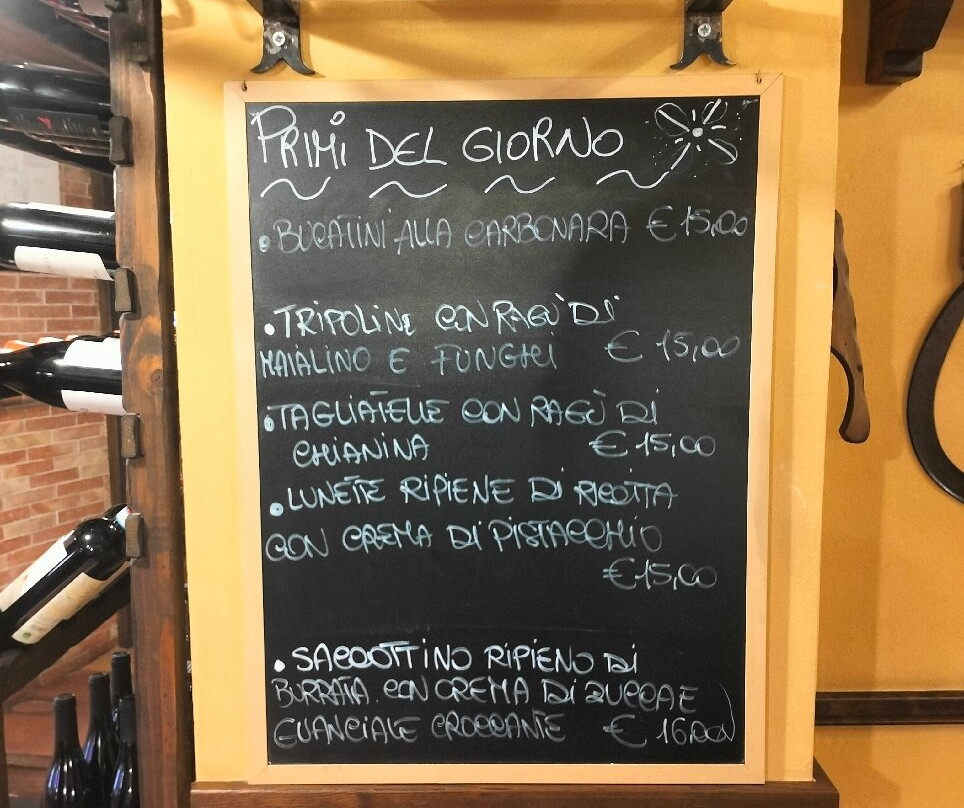 PRIMI DEL GIORNO
• BUCATINI ALLA CARBONARA € 15,00
• TRIPOLINE CON RAGÙ DI
MAIALINO E FUNGHI € 15,00
• TAGLIATELLE CON RAGÙ DI
CHIANINA € 15,00
• LUNETTE RIPIENE DI RICOTTA
CON CREMA DI PISTACCHIO
€ 15,00
• SACCOTTINO RIPIENO DI
BURRATA CON CREMA DI ZUCCA E
GUANCIALE CROCCANTE € 16,00